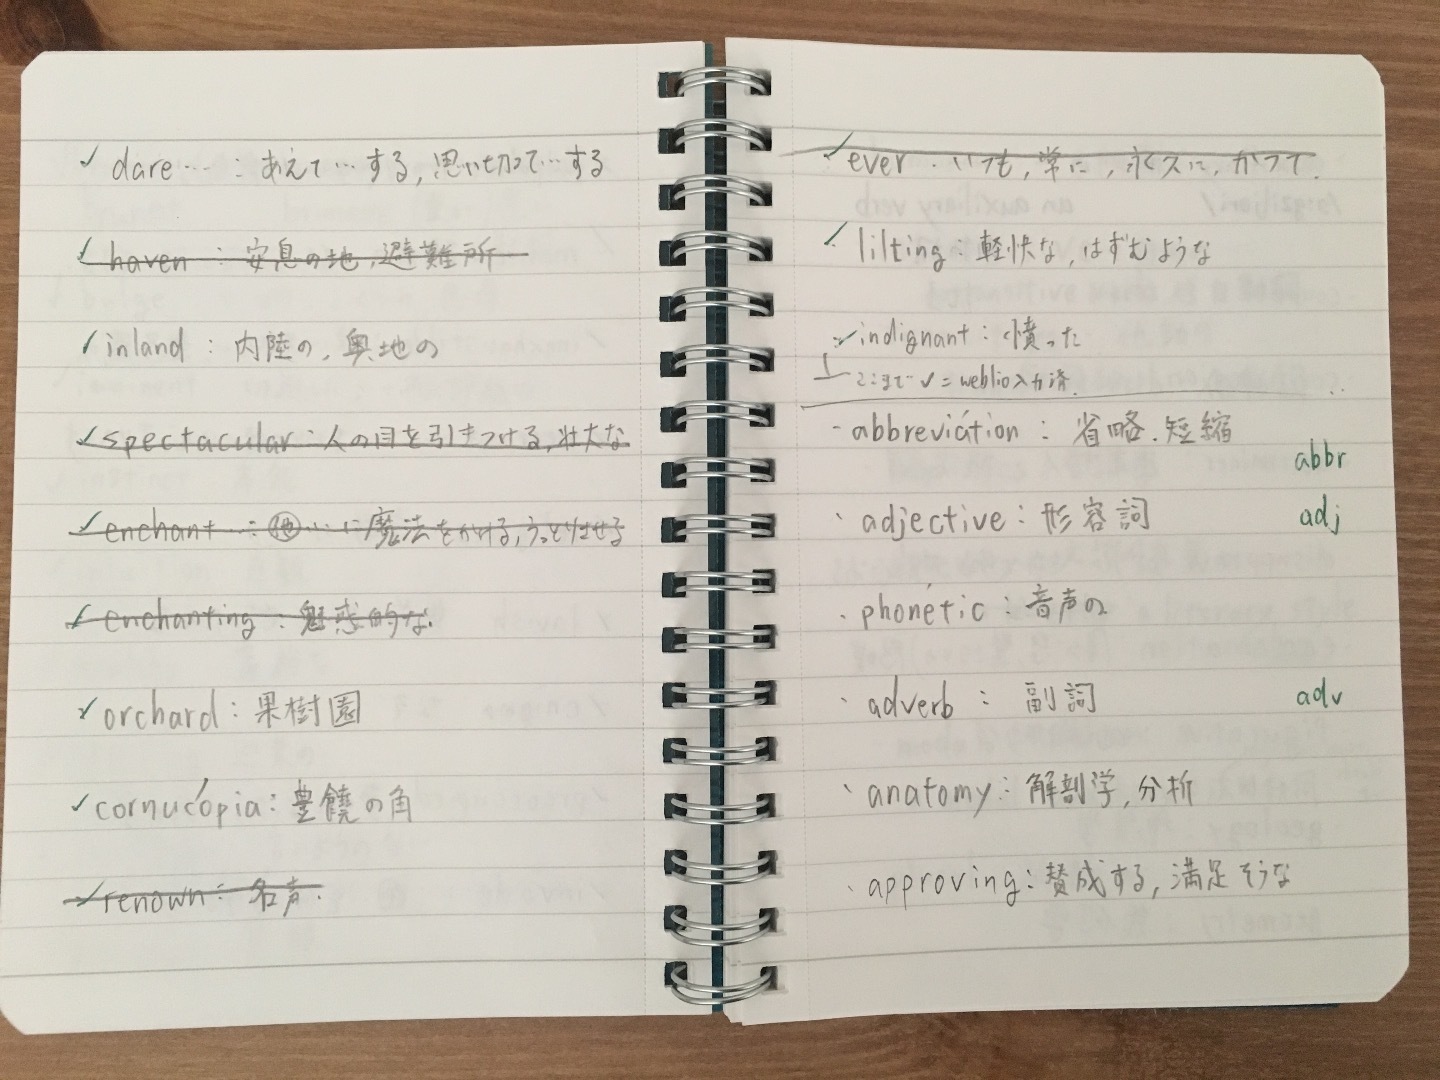 ✓ dare… : あえて…する, 思い切って…する
✓ haven : 安息の地, 避難所
✓ inland : 内陸の, 奥地の
✓ spectacular : 人の目を引きつける, 壮大な
✓ enchant … : 他 …に魔法をかける, うっとりさせる
✓ enchanting : 魅惑的な
✓ orchard : 果樹園
✓ cornucópia : 豊饒の角
✓ renown : 名声
✓ ever . いつも, 常に, 永久に, かつて
✓ lilting : 軽快な, はずむような
✓ indignant : 憤った
ここまで ✓ = weblio入力済
- abbreviátion : 省略. 短縮
abbr
・ adjective : 形容詞 adj
・ phonétic : 音声の
・ adverb : 副詞 adv
・ anatomy : 解剖学, 分析
・ approving : 賛成する, 満足そうな